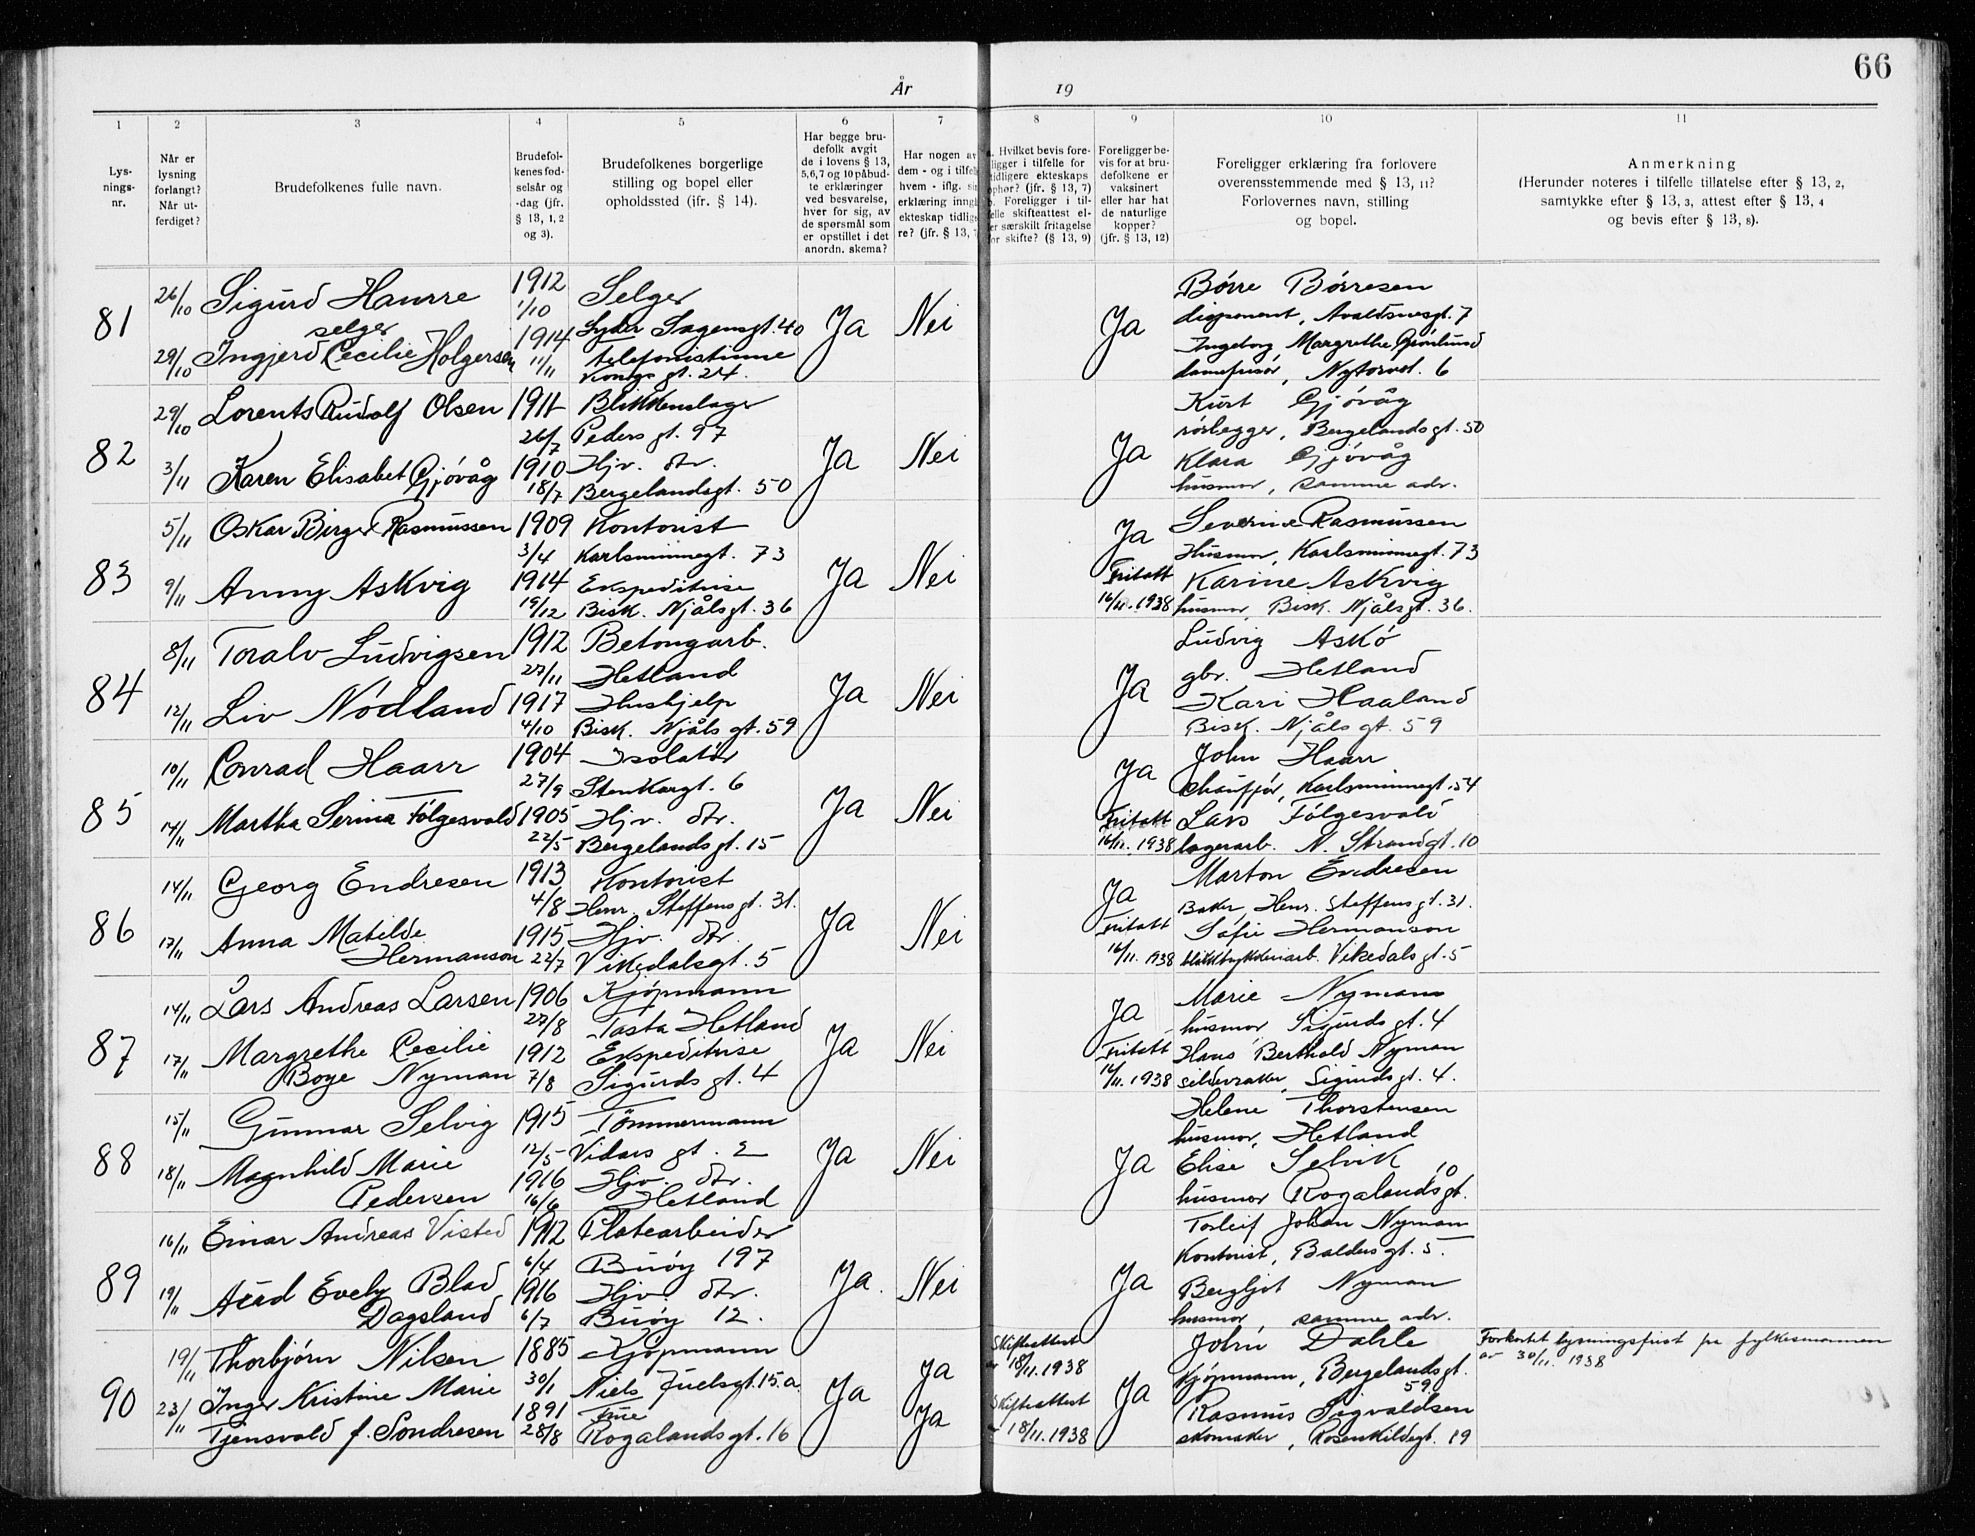 66
År 19
1 2 3 4 5 6 7 8 9 10 11
Lys-
nings-
nr.
Når er
lysning
forlangt?
Når ut-
ferdiget?
Brudefolkenes fulle navn.
Brudefol-
kenes fød-
selsår og
-dag (jfr.
§ 13, 1, 2
og 3).
Brudefolkenes borgerlige
stilling og bopel eller
opholdssted (jfr. § 14).
Har begge bru-
defolk avgit
de i lovens § 13,
5,6,7 og 10 påbud-
te erklæringer
ved besvarelse,
hver for sig, av
de spørsmål som
er opstillet i det
anordn. skema?
Har nogen av
dem - og i tilfel
hvem - iflg. sin
erklæring inng
ekteskap tidlig
re? (jfr. § 13, 7
Hvilket bevis fore-
ligger i tilfelle for
tidligere ekteskaps
ophør? (jfr. § 13, 7)
b. Foreligger i til-
felle skifteattest el-
er særskilt fritagelse
for skifte? (§ 13, 9)
Foreligger be-
vis for at bru-
defolkene er
vaksinert
eller har hat
de naturlige
kopper?
(jfr. § 13, 12)
Foreligger erklæring fra forlovere
overensstemmende med § 13, 11?
Forlovernes navn, stilling
og bopel.
Anmerkning
(Herunder noteres i tilfelle tillatelse efter § 13, 2,
samtykke efter § 13, 3, attest efter § 13, 4
og bevis efter § 13, 8).
81
26/10 Sigurd Haurre 1912 Selger
selger 1/10 Lyder Sagensgt. 40
29/10 Ingjerd Cecilie Holgersen 1914 telefonistinne
11/11 Kongsgt. 24.
Ja Nei Ja
Børre Børresen
disponent, Avaldsnesgt. 7
Ingeborg Margrethe Grønlund
damefrisør, Nytorvet. 6
82
29/10 Lorents Rudolf Olsen 1911 Blikkenslager
26/7 Pedersgt. 97
3/11 Karen Elisabet Gjøvåg 1910 Hjv. dtr.
18/7 Bergelandsgt. 50
Ja Nei Ja
Kurt Gjøvåg
rørlegger, Bergelandsgt. 50
Klara Gjøvåg
husmor, samme adr.
83
5/11 Oskar Birger Rasmussen 1909 Kontorist
3/4 Karlsminnegt. 73
9/11 Anny Askvig 1914 Ekspeditrise
19/12 Bisk. Njålsgt. 36
Ja Nei Ja
Fritatt
16/11. 1938
Severine Rasmussen
Husmor, Karlsminnegt. 73
Karine Askvig
husmor, Bisk. Njålsgt. 36.
84
8/11 Toralv Ludvigsen 1912 Betongarb.
27/11 Hetland
12/11 Liv Nødland 1917 Hushjelp
4/10 Bisk. Njålsgt. 59
Ja Nei Ja
Ludvig Askø
gbr. Hetland
Kari Haaland
Bisk. Njålsgt. 59
85
10/11 Conrad Haarr 1904 Isolatør
27/9 Stenkargt. 6
14/11 Martha Serina Følgesvold 1905 Hjv. dtr.
22/5 Bergelandsgt. 15
Ja Nei Ja
Fritatt
16/11. 1938
John Haarr
chaufför, Karlsminnegt. 54
Lars Følgesvold
lagerarb. N. Strandgt. 10
86
14/11 Georg Endresen 1913 Kontorist
4/8 Henr. Steffensgt. 31.
17/11 Anna Matilde 1915 Hjv. dtr.
Hermanson 22/7 Vikedalsgt. 5
Ja Nei Ja
Fritatt
16/11. 1938
Marton Endresen
Baker, Henr. Steffensgt. 31.
Sofie Hermanson
blikktrykkeriarb. Vikedalsgt. 5
87
14/11 Lars Andreas Larsen 1906 Kjøpmann
27/8 Tasta Hetland
17/11 Margrethe Cecilie 1912 Ekspeditrise
Boye Nyman 7/8 Sigurdsgt. 4
Ja Nei Ja
Fritatt
16/11. 1938
Marie Nyman
husmor Sigurdsgt. 4
Hans Berthold Nyman
sildevraker, Sigurdsgt. 4.
88
15/11 Gunnar Selvig 1915 Tømmermann
12/5 Vidars gt. 2
18/11 Magnhild Marie 1916 Hjv. dtr.
Pedersen 16/6 Hetland
Ja Nei Ja
Helene Thorstensen
husmor, Hetland
Elise Selvik
husmor Rogalandsgt. 10
89
16/11 Einar Andreas Visted 1912 Platearbeider
6/4 Buøy 197
19/11 Evely Blad 1916 Hjv. dtr.
Dagsland 6/7 Buøy 12.
Ja. Nei Ja
Torleif Johan Nyman
Kontorist, Baldersgt. 5.
Bergljot Nyman
husmor, samme adr.
90
19/11 Thorbjørn Nilsen 1885 Kjøpmann
30/1 Niels Juelsgt. 15.a
23/11 Inger Kristine Marie 1891 Frue
Tjensvold f. Sondresen 28/8 Rogalandsgt. 16
Ja Ja Ja
Skifteattest
av 18/11. 1938
Skifteattest
18/11. 1938
Ja
John Dahle
Kjøpmann, Bergelandsgt.
59
Rasmus Sigvaldsen
skomaker, Rosenkildegt. 19
Forkortet lysningsfrist fra fylkesmannen
av 30/11. 1938